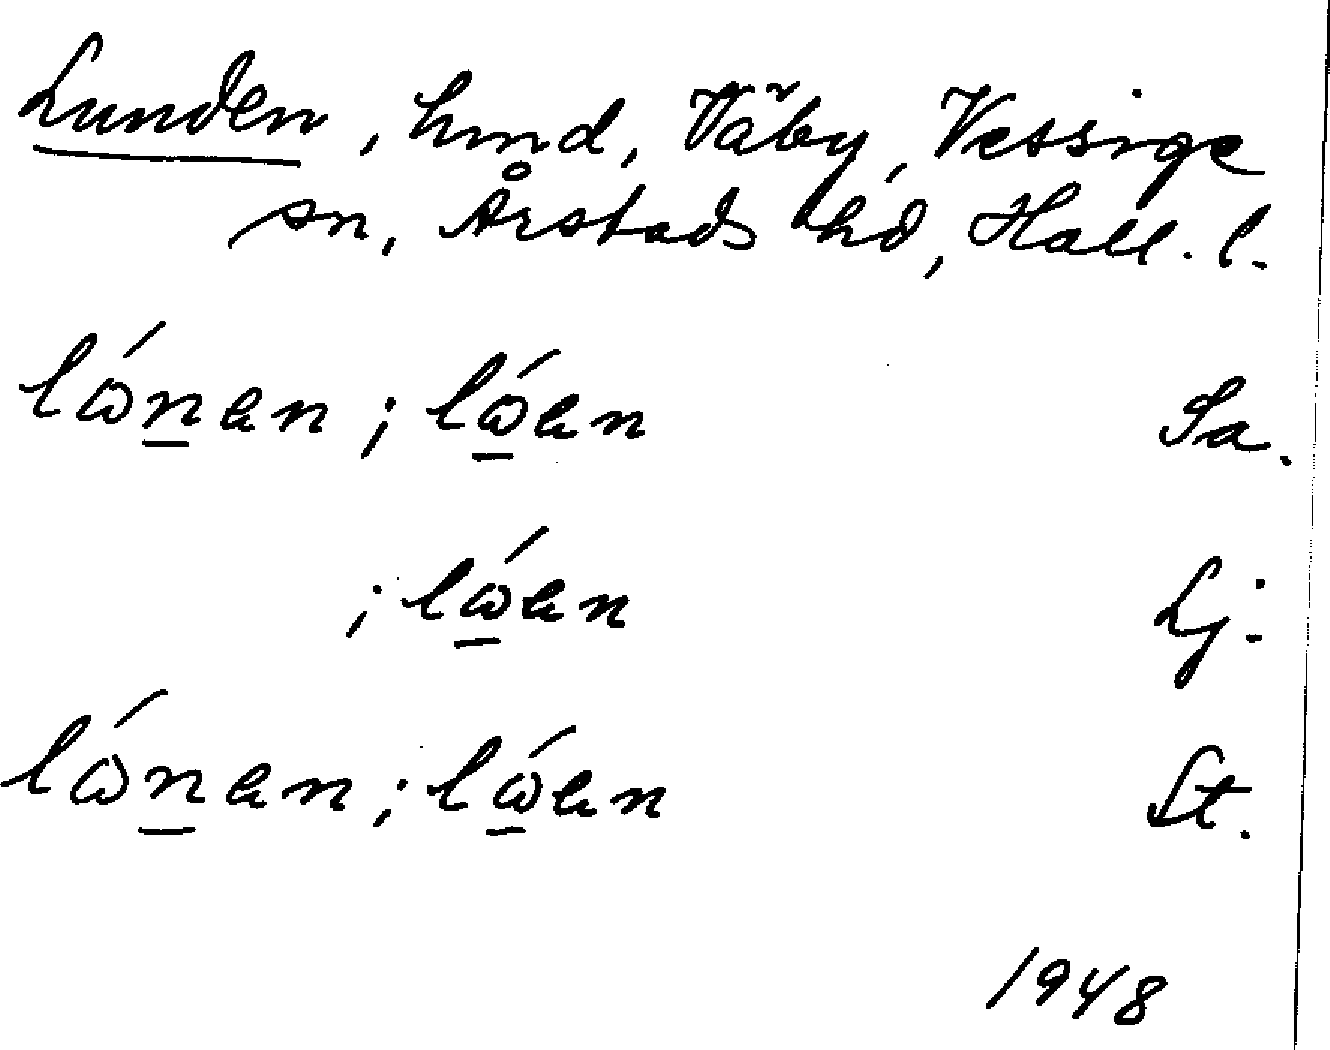 Lunden, hmd, Väby, Vessige
sn, Årstads hd, Hall. l.
lώnen; lώen Sa.
; lώen Lj.
lώnen; lώen St.
1948